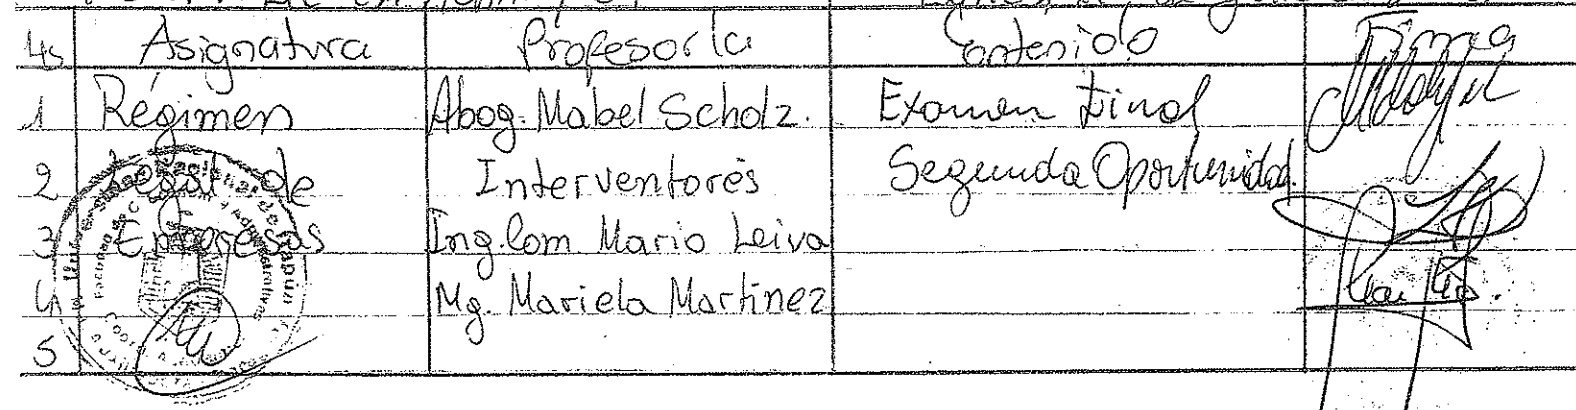 Hs Asignatura Profesor/a Contenido Firma
1 Régimen Abog. Mabel Scholz. Examen Final
2 Legal de Interventores Segunda Oportunidad.
3 Empresas Ing. Com Mario Leiva
4 Mg. Mariela Martinez
5